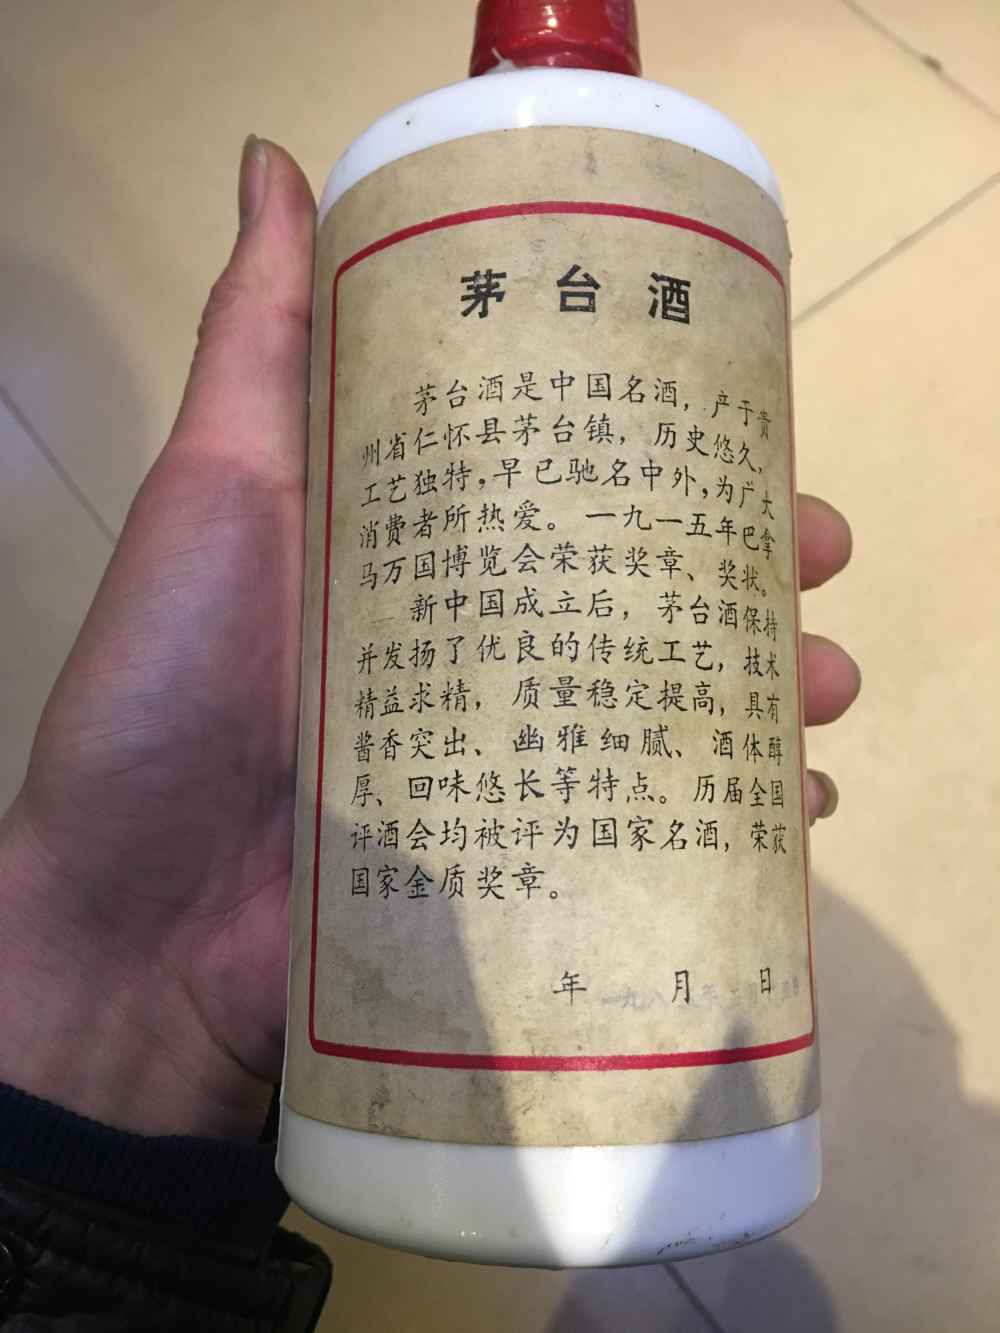 茅台酒
茅台酒是中国名酒，产于贵
州省仁怀县茅台镇，历史悠久，
工艺独特，早已驰名中外，为广大
消费者所热爱。一九一五年巴拿
马万国博览会荣获奖章、奖状。
新中国成立后，茅台酒保持
并发扬了优良的传统工艺，技术
精益求精，质量稳定提高，具有
酱香突出、幽雅细腻、酒体醇
厚、回味悠长等特点。历届全国
评酒会均被评为国家名酒，荣获
国家金质奖章。
年 月 日
一九八 年